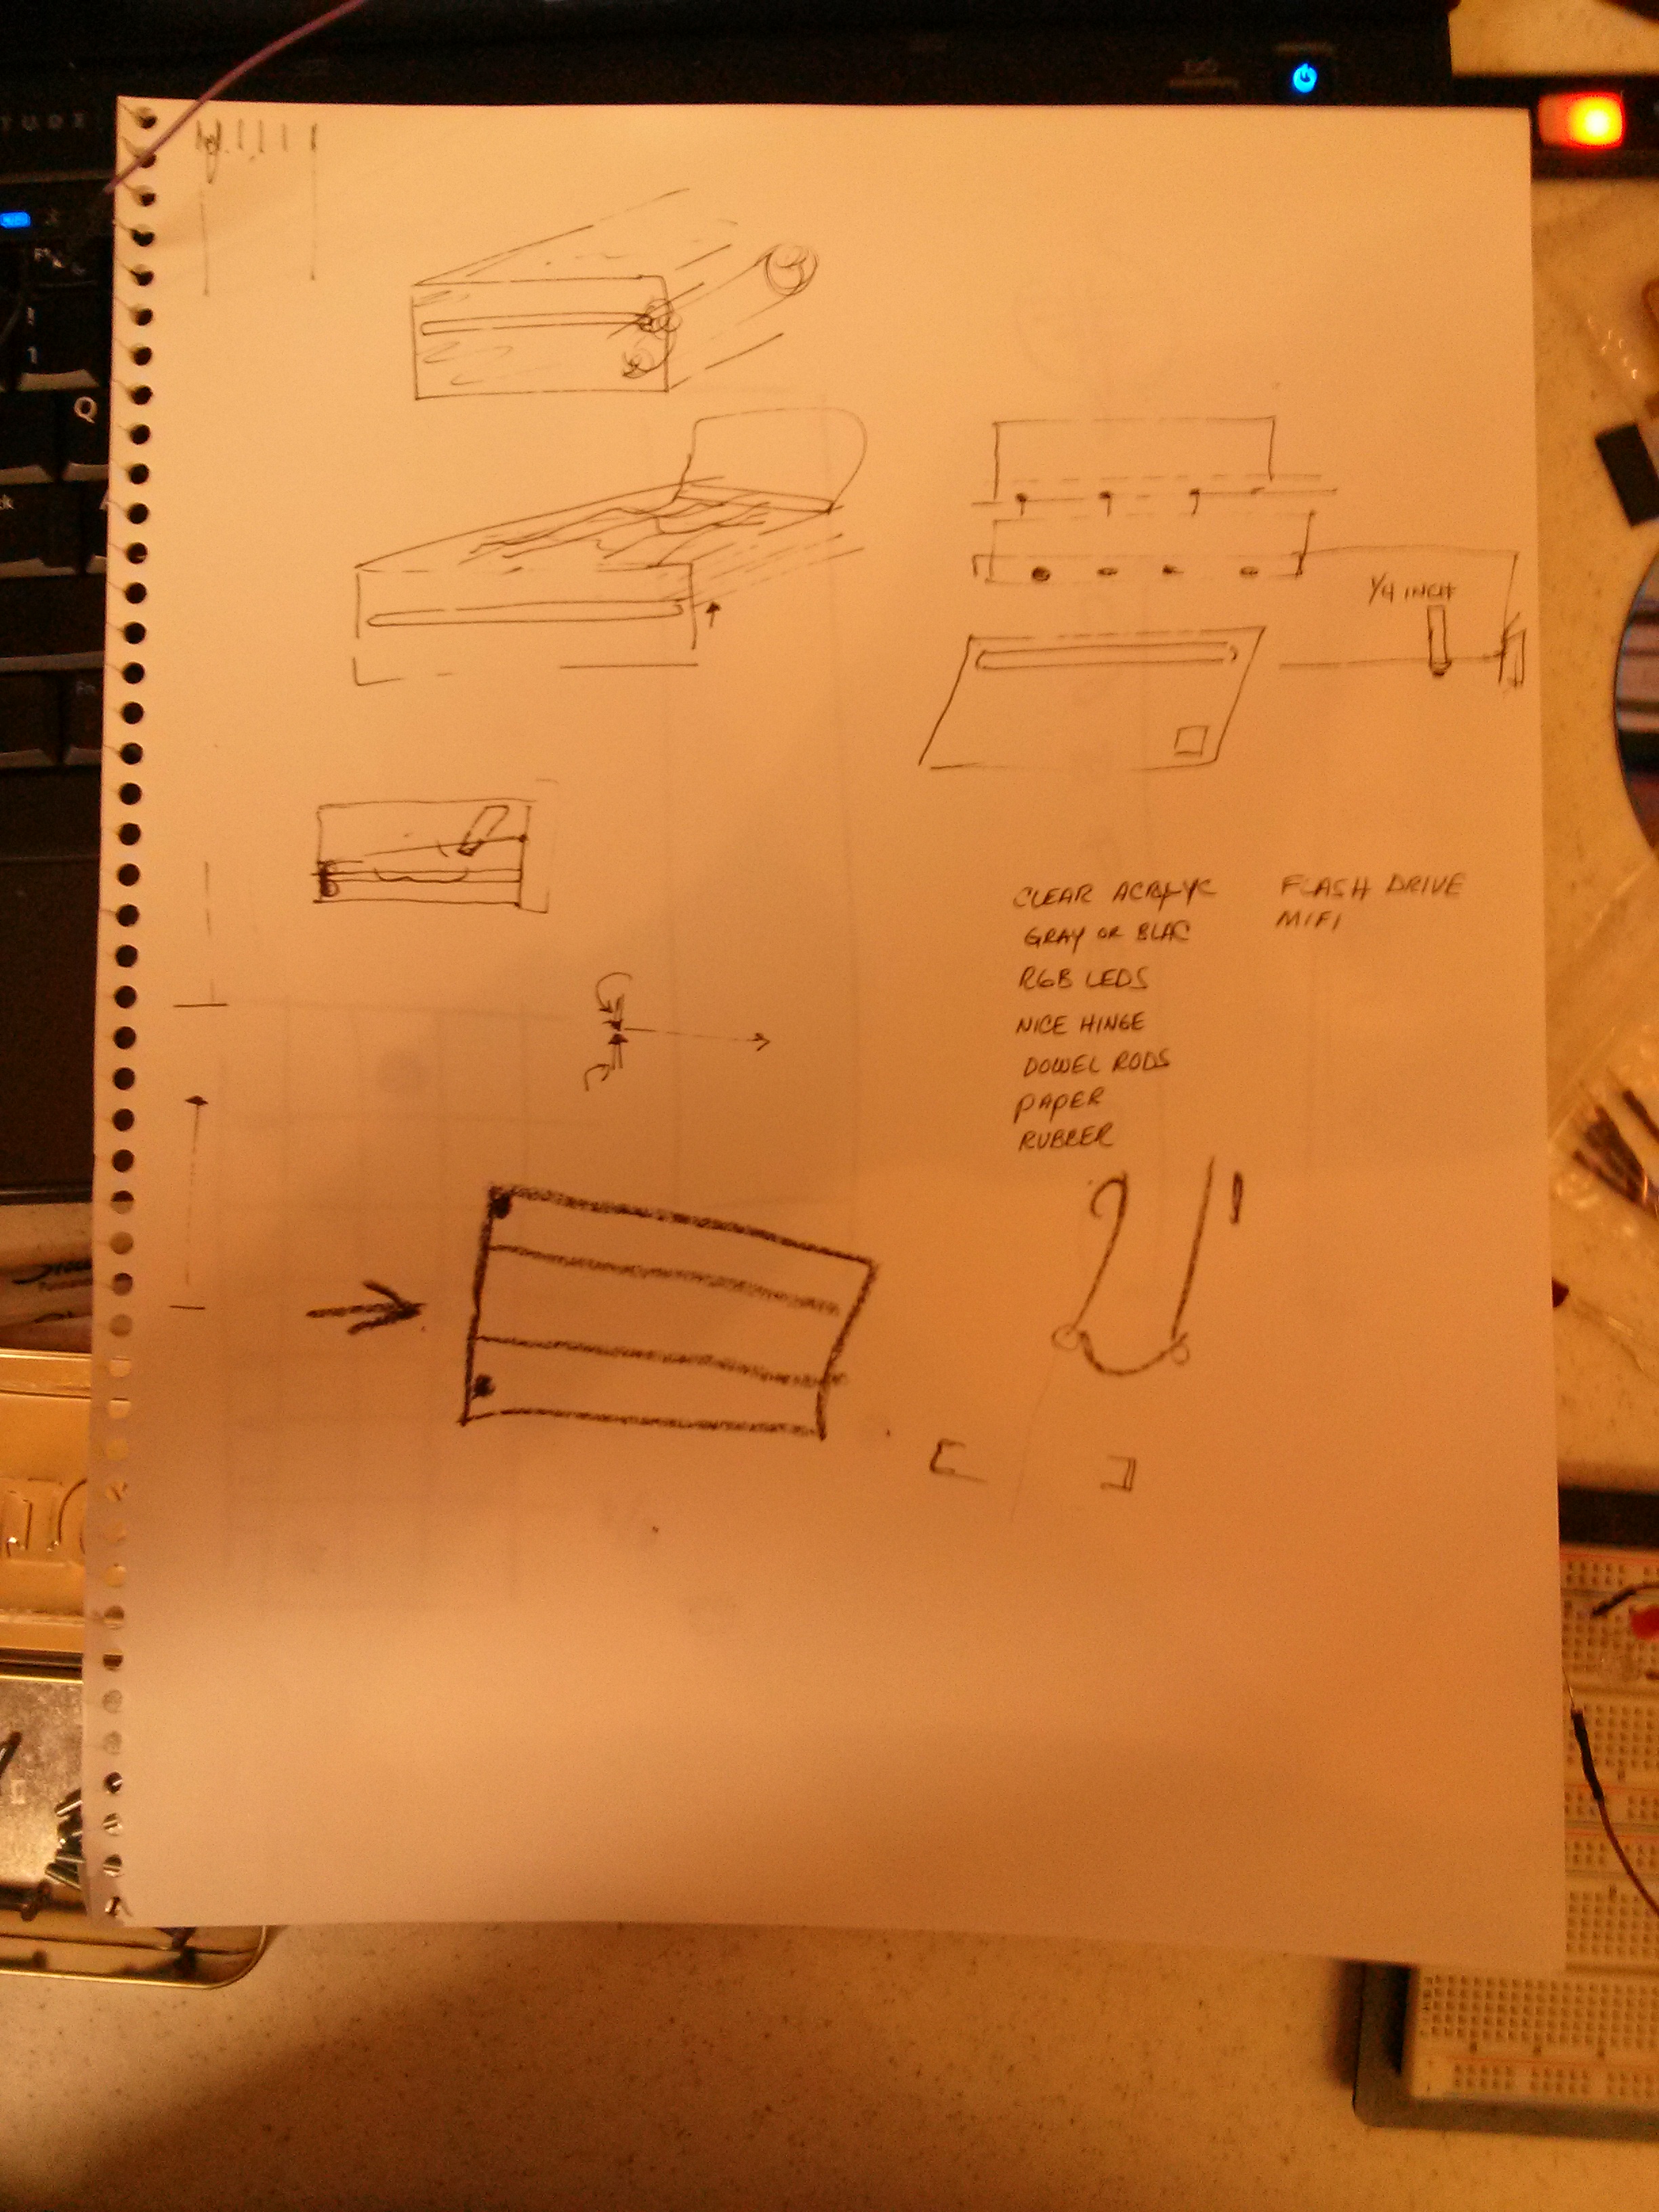 TUDE
Fn
!
1
Q
Fn
1/4 INCH
CLEAR ACRLYC
GRAY OR BLAC
RGB LEDS
NICE HINGE
DOWEL RODS
PAPER
RUBBER
FLASH DRIVE
MIFI